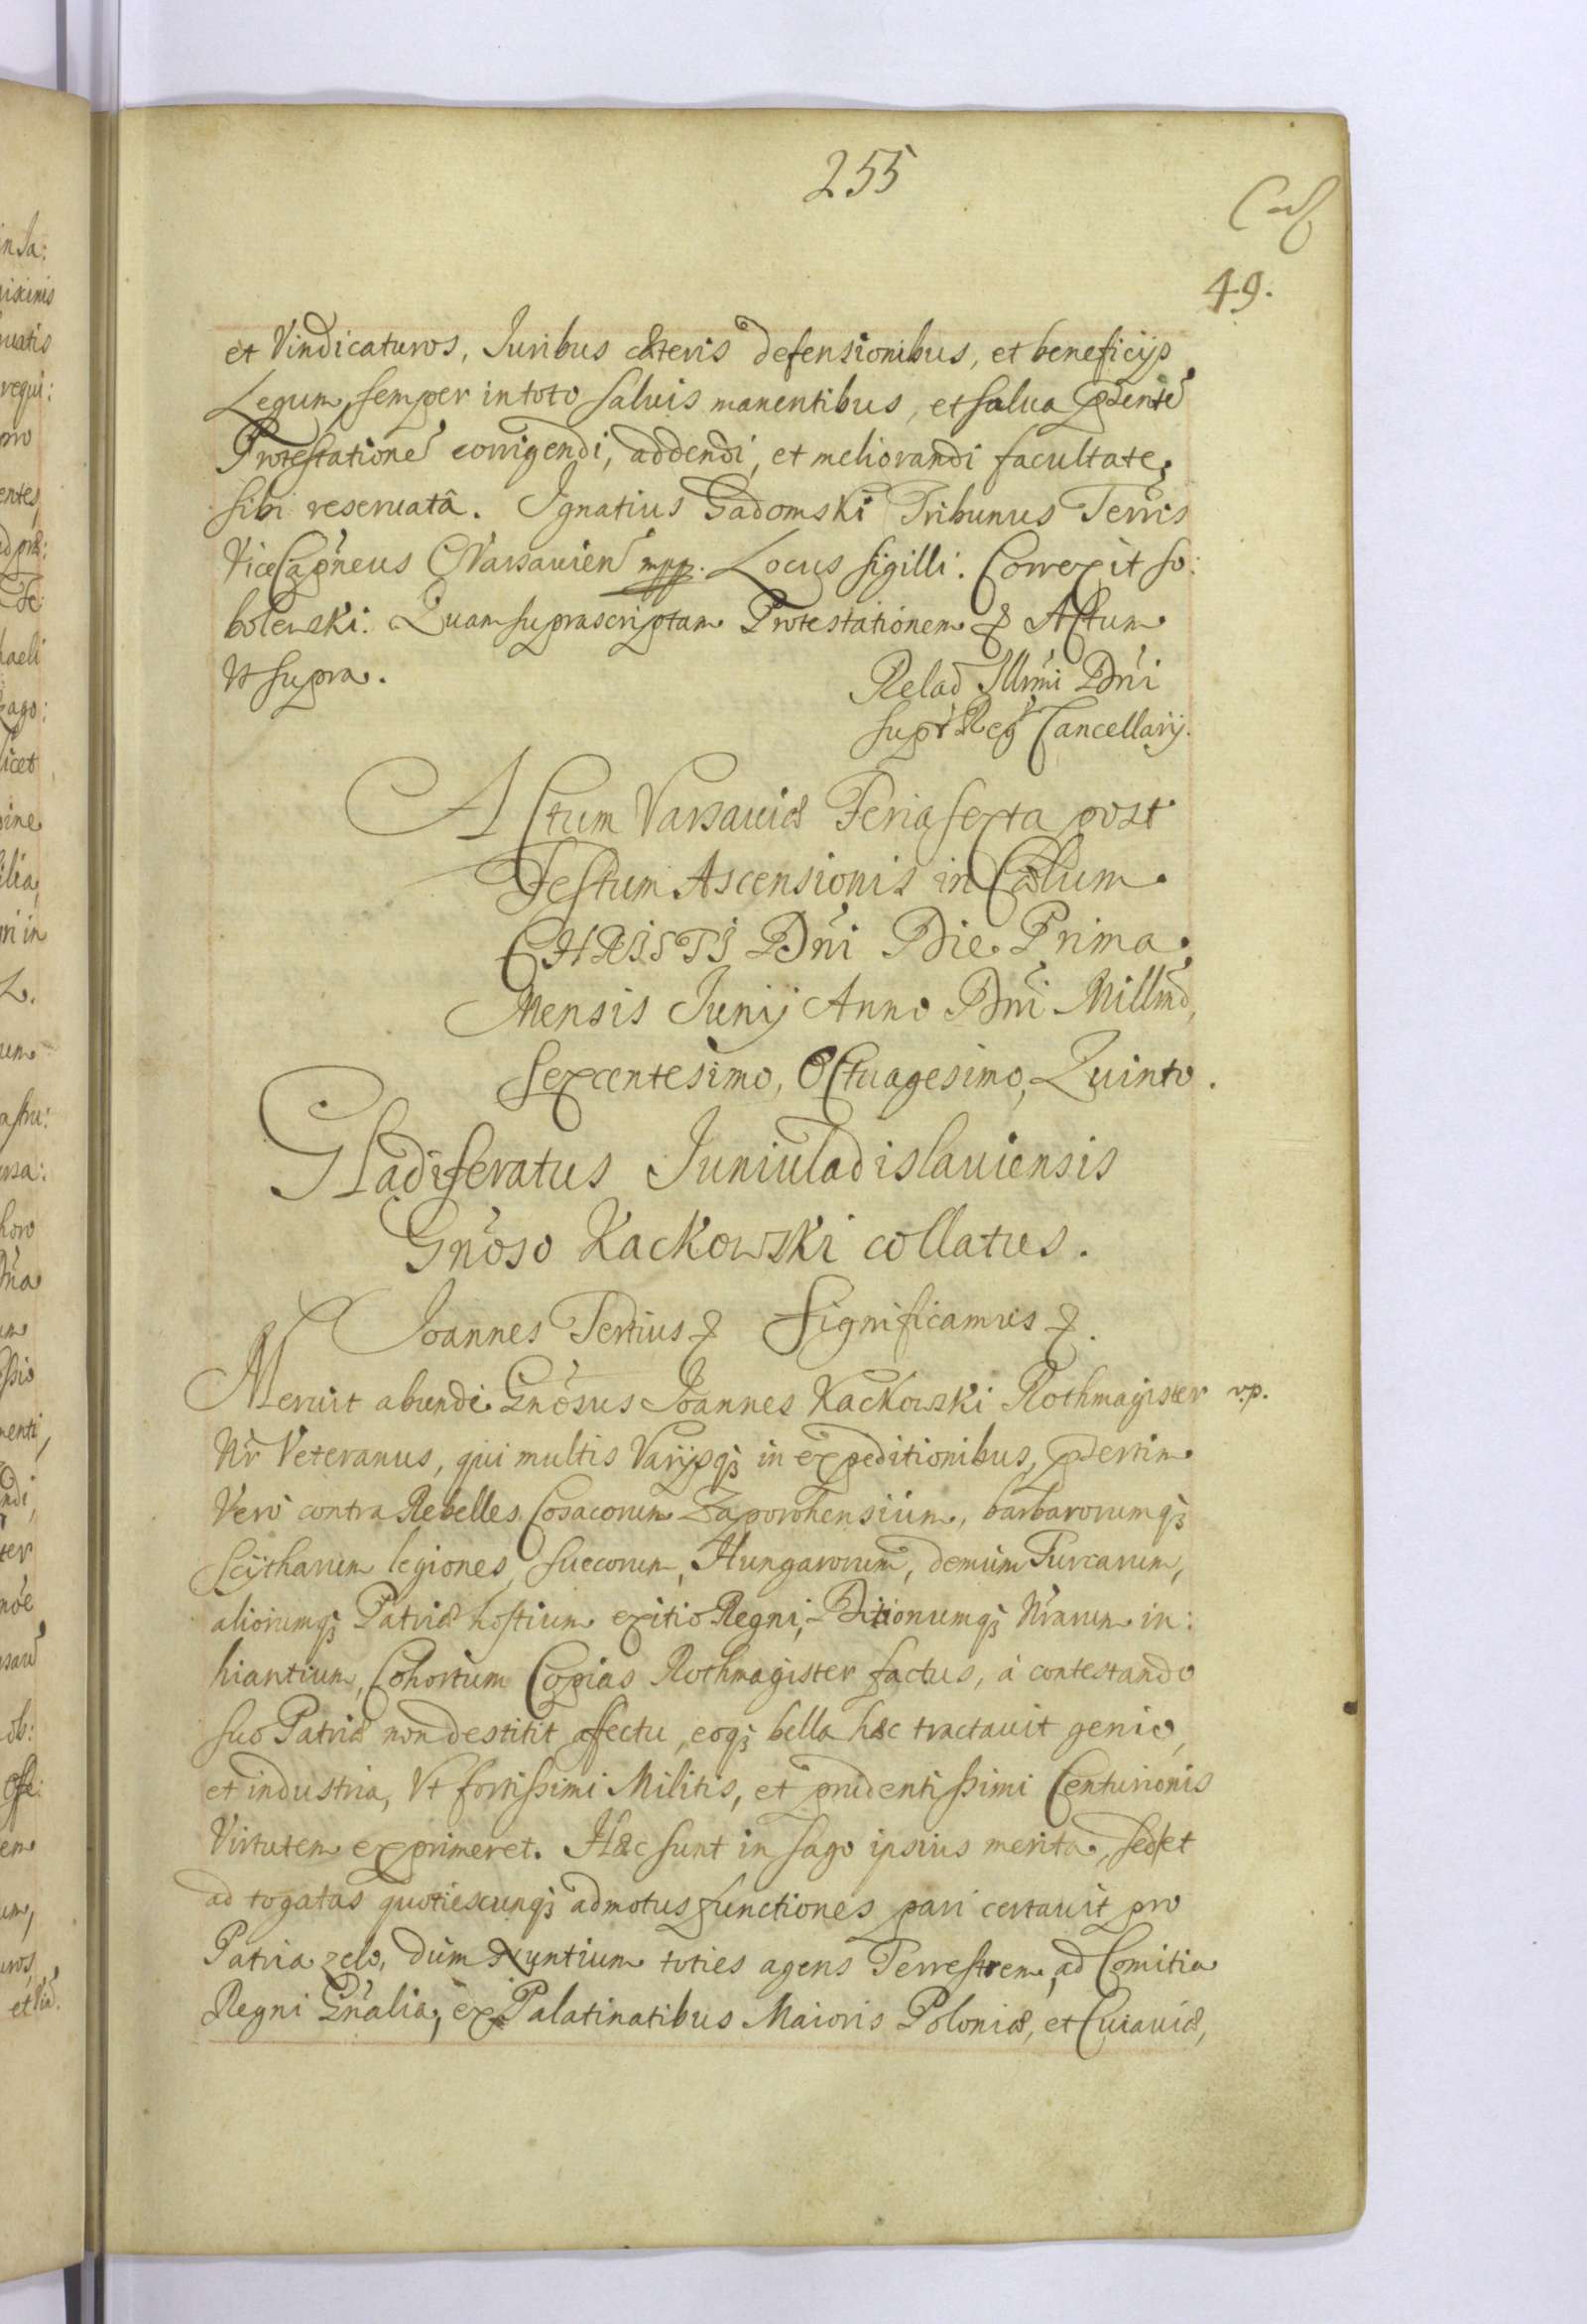 255
49.
et Vindicaturos, Juribus cæteris defensionibus, et beneficijs
Legum, semper in toto saluis manentibus, et salua pñte
Protestatione corrigendi, addendi, et meliorandi facultate,
sibi reseruatâ. Ignatius Gadomski Tribunus Terris
ViceCapñeus Varsauien mpp. Locus sigilli. Correxit so:
bolewski. Quam suprascriptam Protestationem & Actum
Vt supra.
Relaõ Illrmi Dñi
supr Reg Cancellarij.
Actum Varsauiæ Feria sexta post
Festum Ascensionis in Cælum
CHRISTI Dñi Die Prima
Mensis Junij Anno Dñi Millmõ,
sexcentesimo, Octuagesimo, Quinto.
Gladiferatus Juniuladislauiensis
Gnõso Kackowski collatus.
Joannes Tertius & significamus &.
Meruit abunde Gnõsus Joannes Kackowski Rothmagister v.p.
Nr̃ Veteranus, qui multis Varijsq3 in expeditionibus, psertim
Vero contra Rebelles Cosacorum Zaporohensium, barbarorumq3
Scÿtharum legiones, suecorum, Hungarorum, demum Turcarum,
aliorumq3 Patriæ hostium exitio Regni, Ditionumq3 Nr̃arum in:
hiantium, Cohortum Copias Rothmagister factus, à contestando
suo Patriæ non destitit affectu, eoq3 bella hæc tractauit genio,
et industria, Vt fortissimi Militis, et prudentissimi Centurionis
Virtutem exprimeret. Hæc sunt in sago ipsius merita, sed et
ad togatas quotiescunq3 admotus functiones pari certauit pro
Patria zelo, dum Nuntium toties agens Terrestrem, ad Comitia
Regni Gñalia, ex Palatinatibus Maioris Poloniæ, et Cuiauiæ,